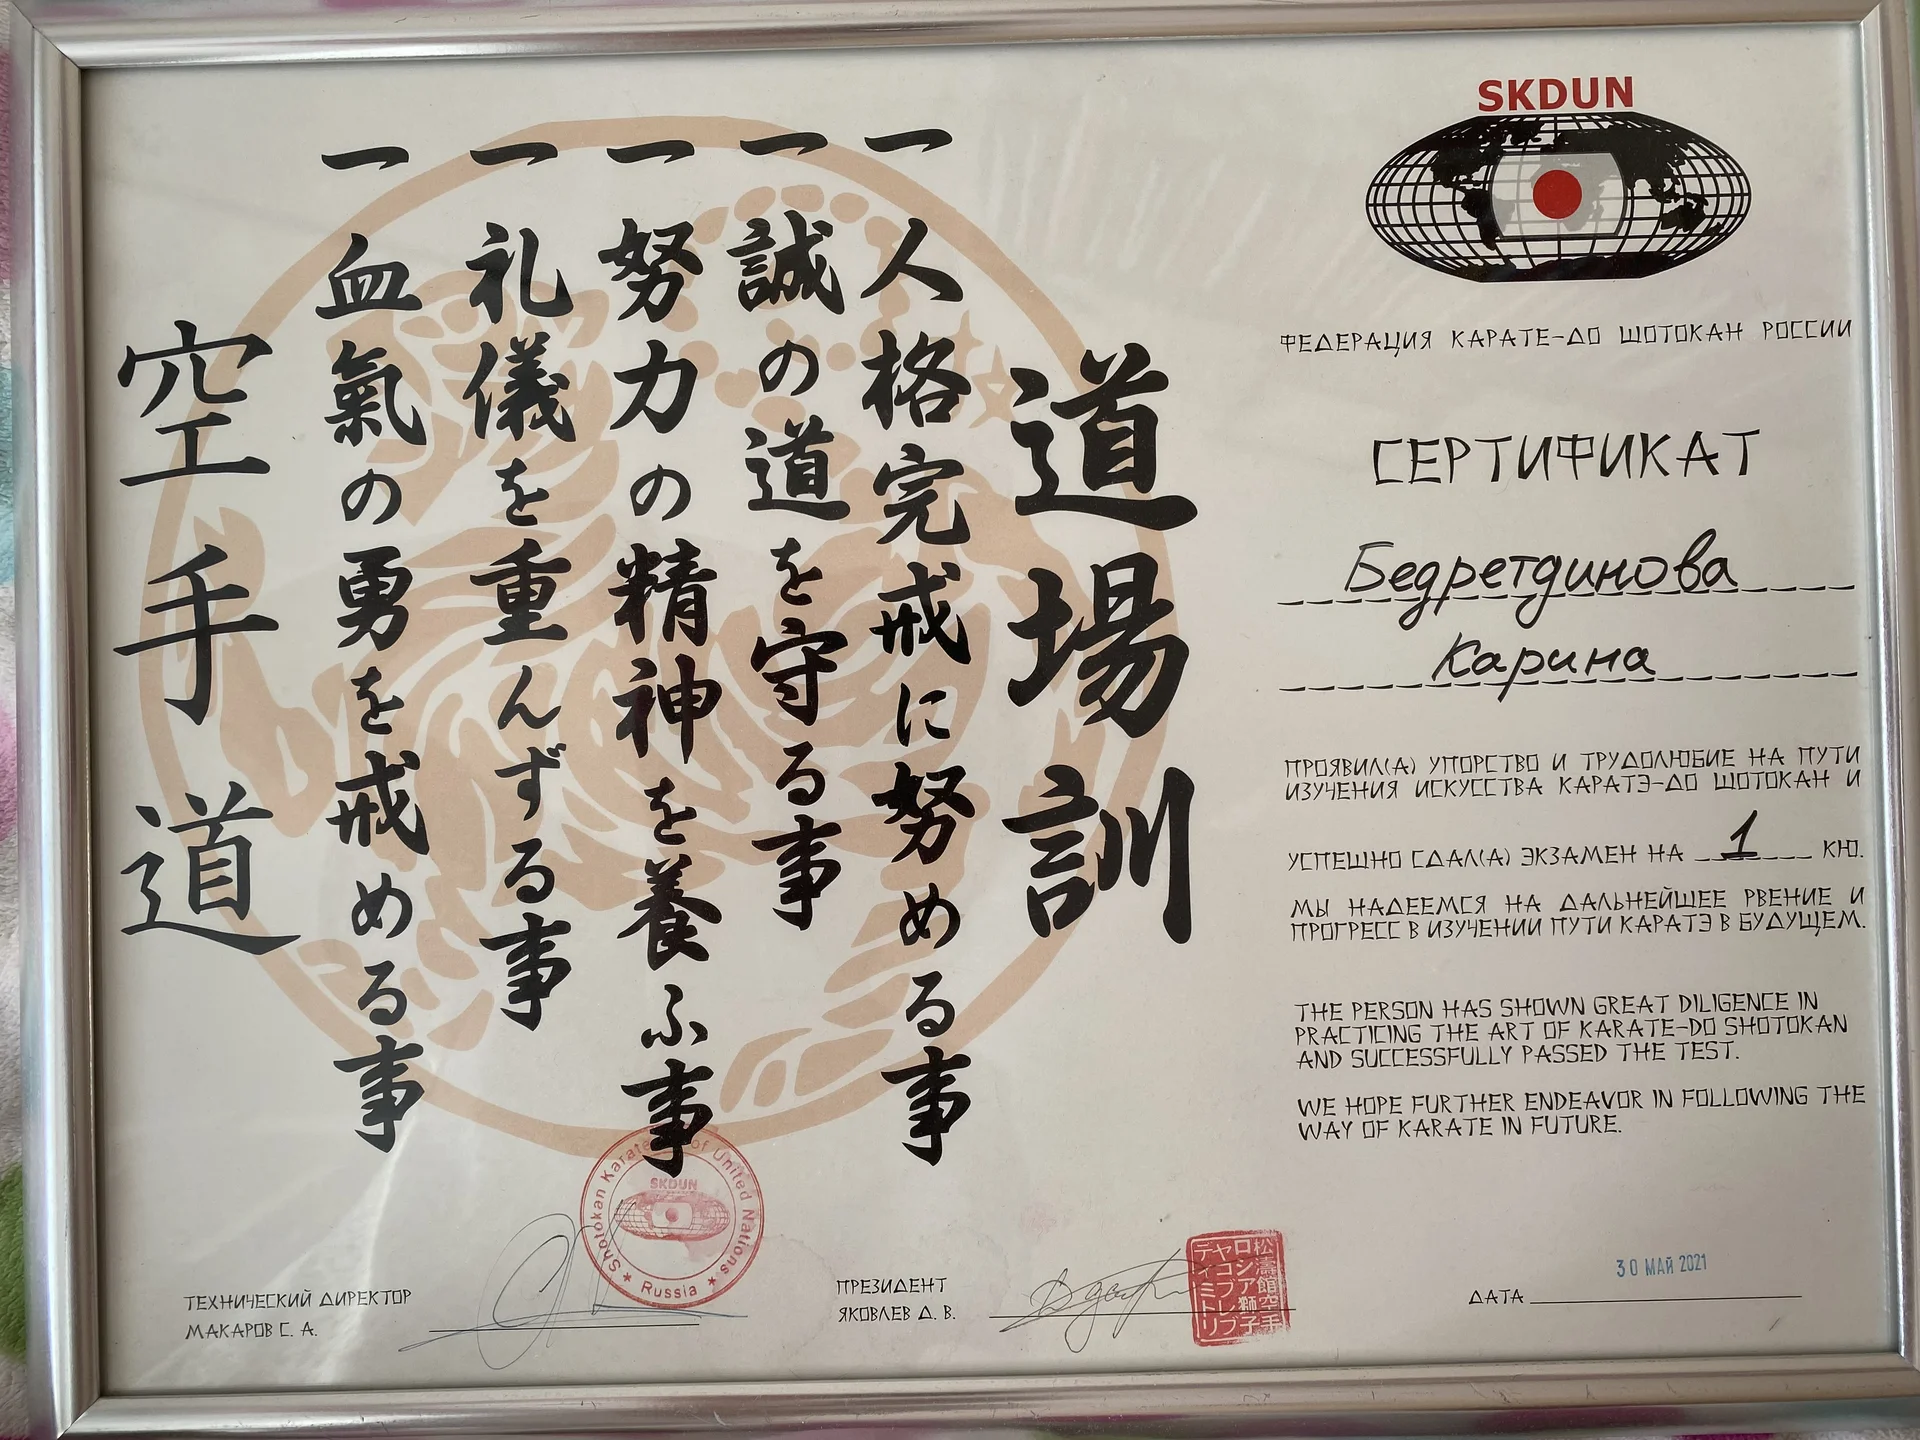 道場訓
一 人格完戒に努める事
一 誠の道を守る事
一 努力の精神を養ふ事
一 礼儀を重んずる事
一 血氣の勇を戒める事
空手道
SKDUN
ФЕДЕРАЦИЯ КАРАТЕ-ДО ШОТОКАН РОССИИ
СЕРТИФИКАТ
Бедретдинова
Карина
ПРОЯВИЛ(А) УПОРСТВО И ТРУДОЛЮБИЕ НА ПУТИ
ИЗУЧЕНИЯ ИСКУССТВА КАРАТЭ-ДО ШОТОКАН И
УСПЕШНО СДАЛ(А) ЭКЗАМЕН НА 1 КЮ.
МЫ НАДЕЕМСЯ НА ДАЛЬНЕЙШЕЕ РВЕНИЕ И
ПРОГРЕСС В ИЗУЧЕНИИ ПУТИ КАРАТЭ В БУДУЩЕМ.
THE PERSON HAS SHOWN GREAT DILIGENCE IN
PRACTICING THE ART OF KARATE-DO SHOTOKAN
AND SUCCESSFULLY PASSED THE TEST.
WE HOPE FURTHER ENDEAVOR IN FOLLOWING THE
WAY OF KARATE IN FUTURE.
ТЕХНИЧЕСКИЙ ДИРЕКТОР
МАКАРОВ С. А.
Shotokan Karate of United Nations
SKDUN
Russia
ПРЕЗИДЕНТ
ЯКОВЛЕВ Д. В.
松濤館空手
ロシア獅子
ヤコブレフ
ディミトリ
30 МАЙ 2021
ДАТА